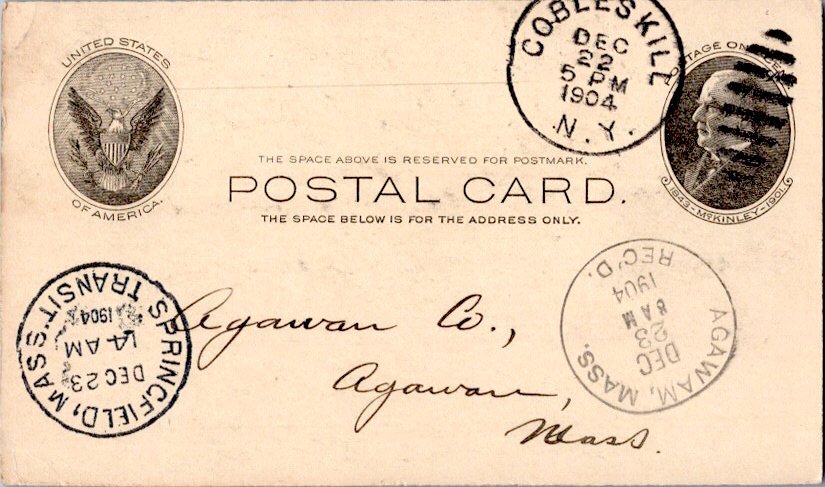 UNITED STATES
OF AMERICA.
COBLESKILL
DEC
22
5 PM
1904
N.Y.
1843-McKINLEY-1901
THE SPACE ABOVE IS RESERVED FOR POSTMARK.
POSTAL CARD.
THE SPACE BELOW IS FOR THE ADDRESS ONLY.
SPRINGFIELD, MASS.
TRANSIT
DEC 23
AM
1904
AGAWAM, MASS.
DEC
23
8 AM
1904
REC'D.
Agawam Co.,
Agawam,
Mass.